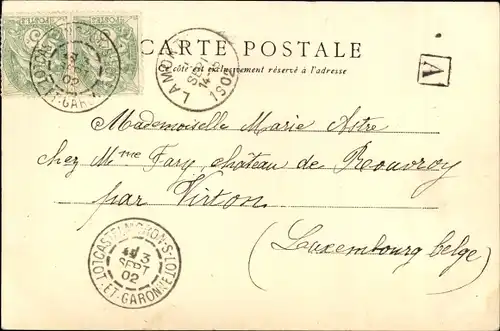 POSTES
CARTE POSTALE
Ce côté est exclusivement réservé à l'adresse
A
CASTELMORON-S-LOT
13
SEPT
02
LOT-ET-GARONNE
LAMO
SEPT
1902
Mademoiselle Marie Astre
chez Mme Fary château de Rouvroy
par Virton
(Luxembourg belge)
CASTELMORON-S-LOT
13
SEPT
02
LOT-ET-GARONNE